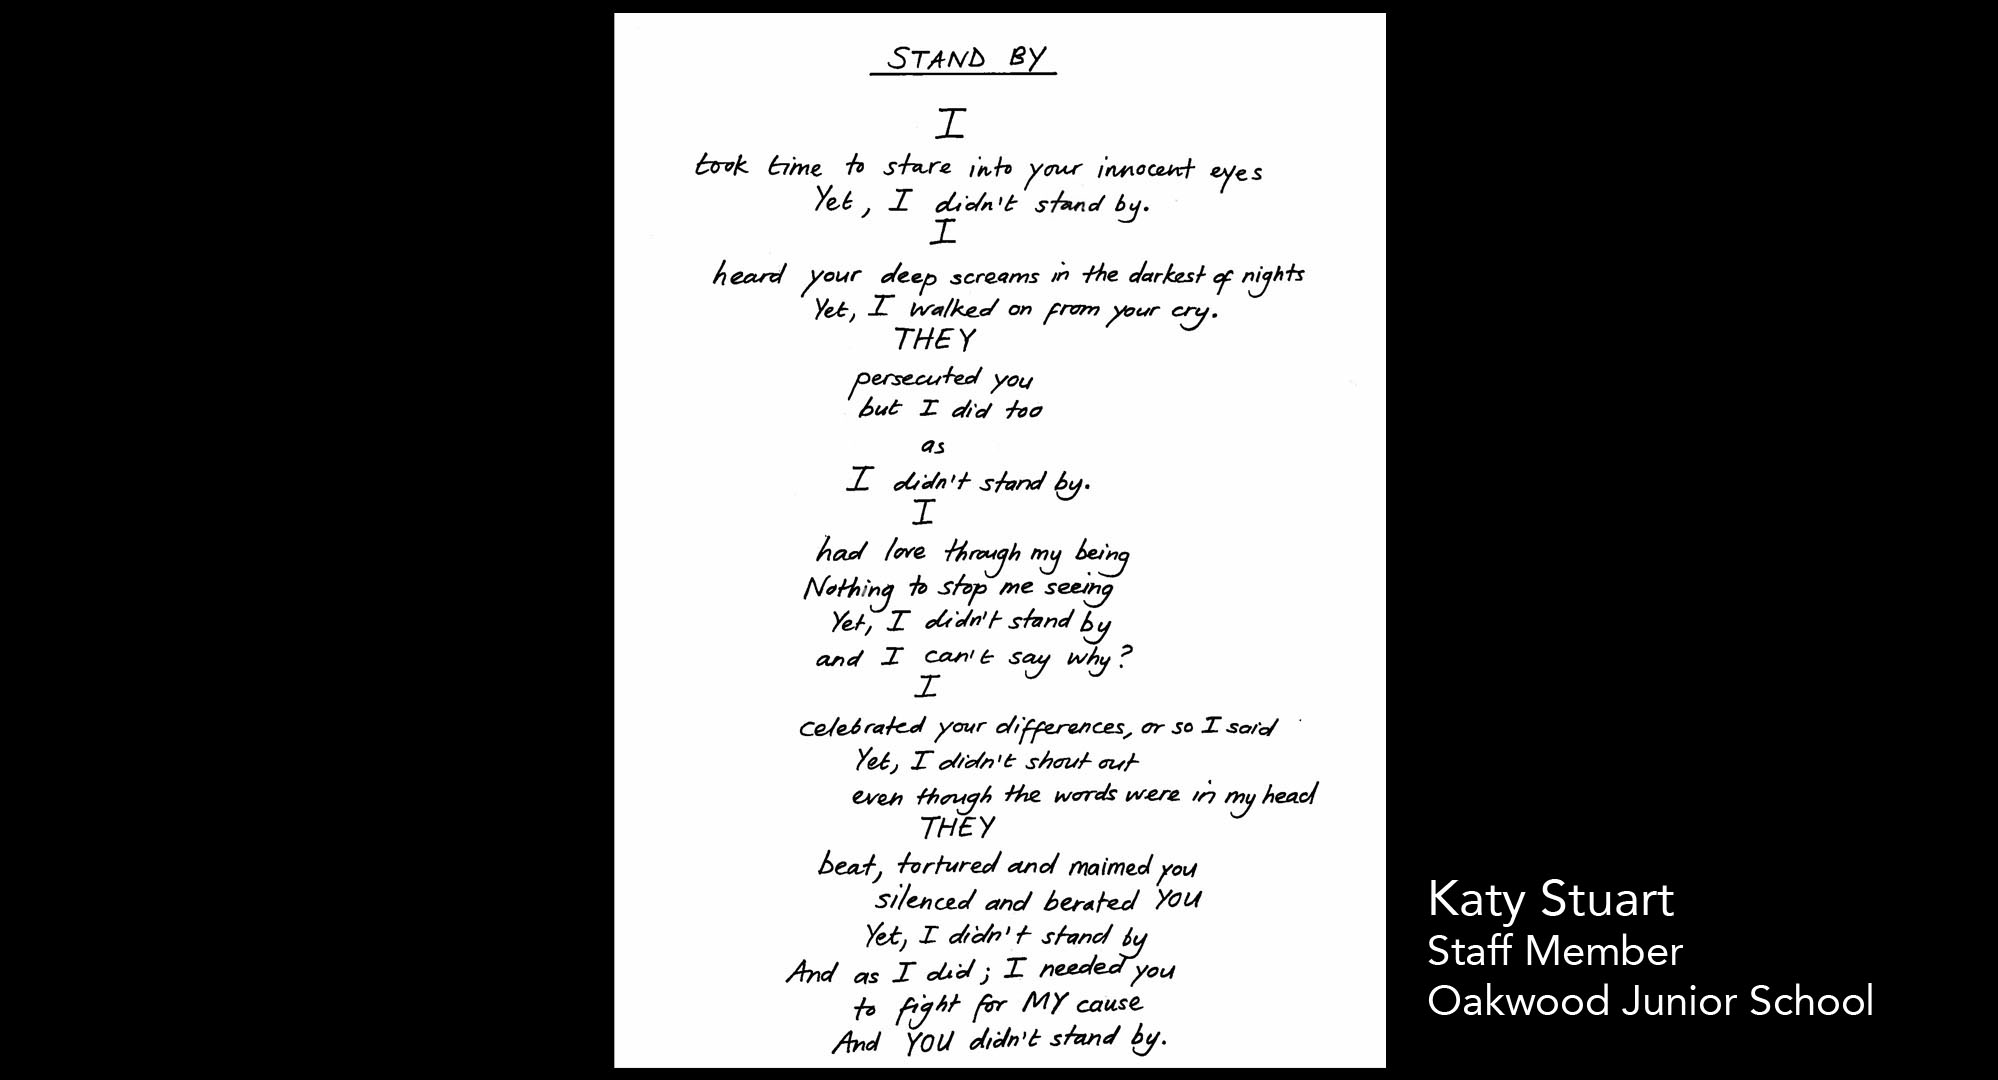 STAND BY
I
took time to stare into your innocent eyes
Yet, I didn't stand by.
I
heard your deep screams in the darkest of nights
Yet, I walked on from your cry.
THEY
persecuted you
but I did too
as
I didn't stand by.
I
had love through my being
Nothing to stop me seeing
Yet, I didn't stand by
and I can't say why?
I
celebrated your differences, or so I said
Yet, I didn't shout out
even though the words were in my head
THEY
beat, tortured and maimed you
silenced and berated YOU
Yet, I didn't stand by
And as I did; I needed you
to fight for MY cause
And YOU didn't stand by.
Katy Stuart
Staff Member
Oakwood Junior School